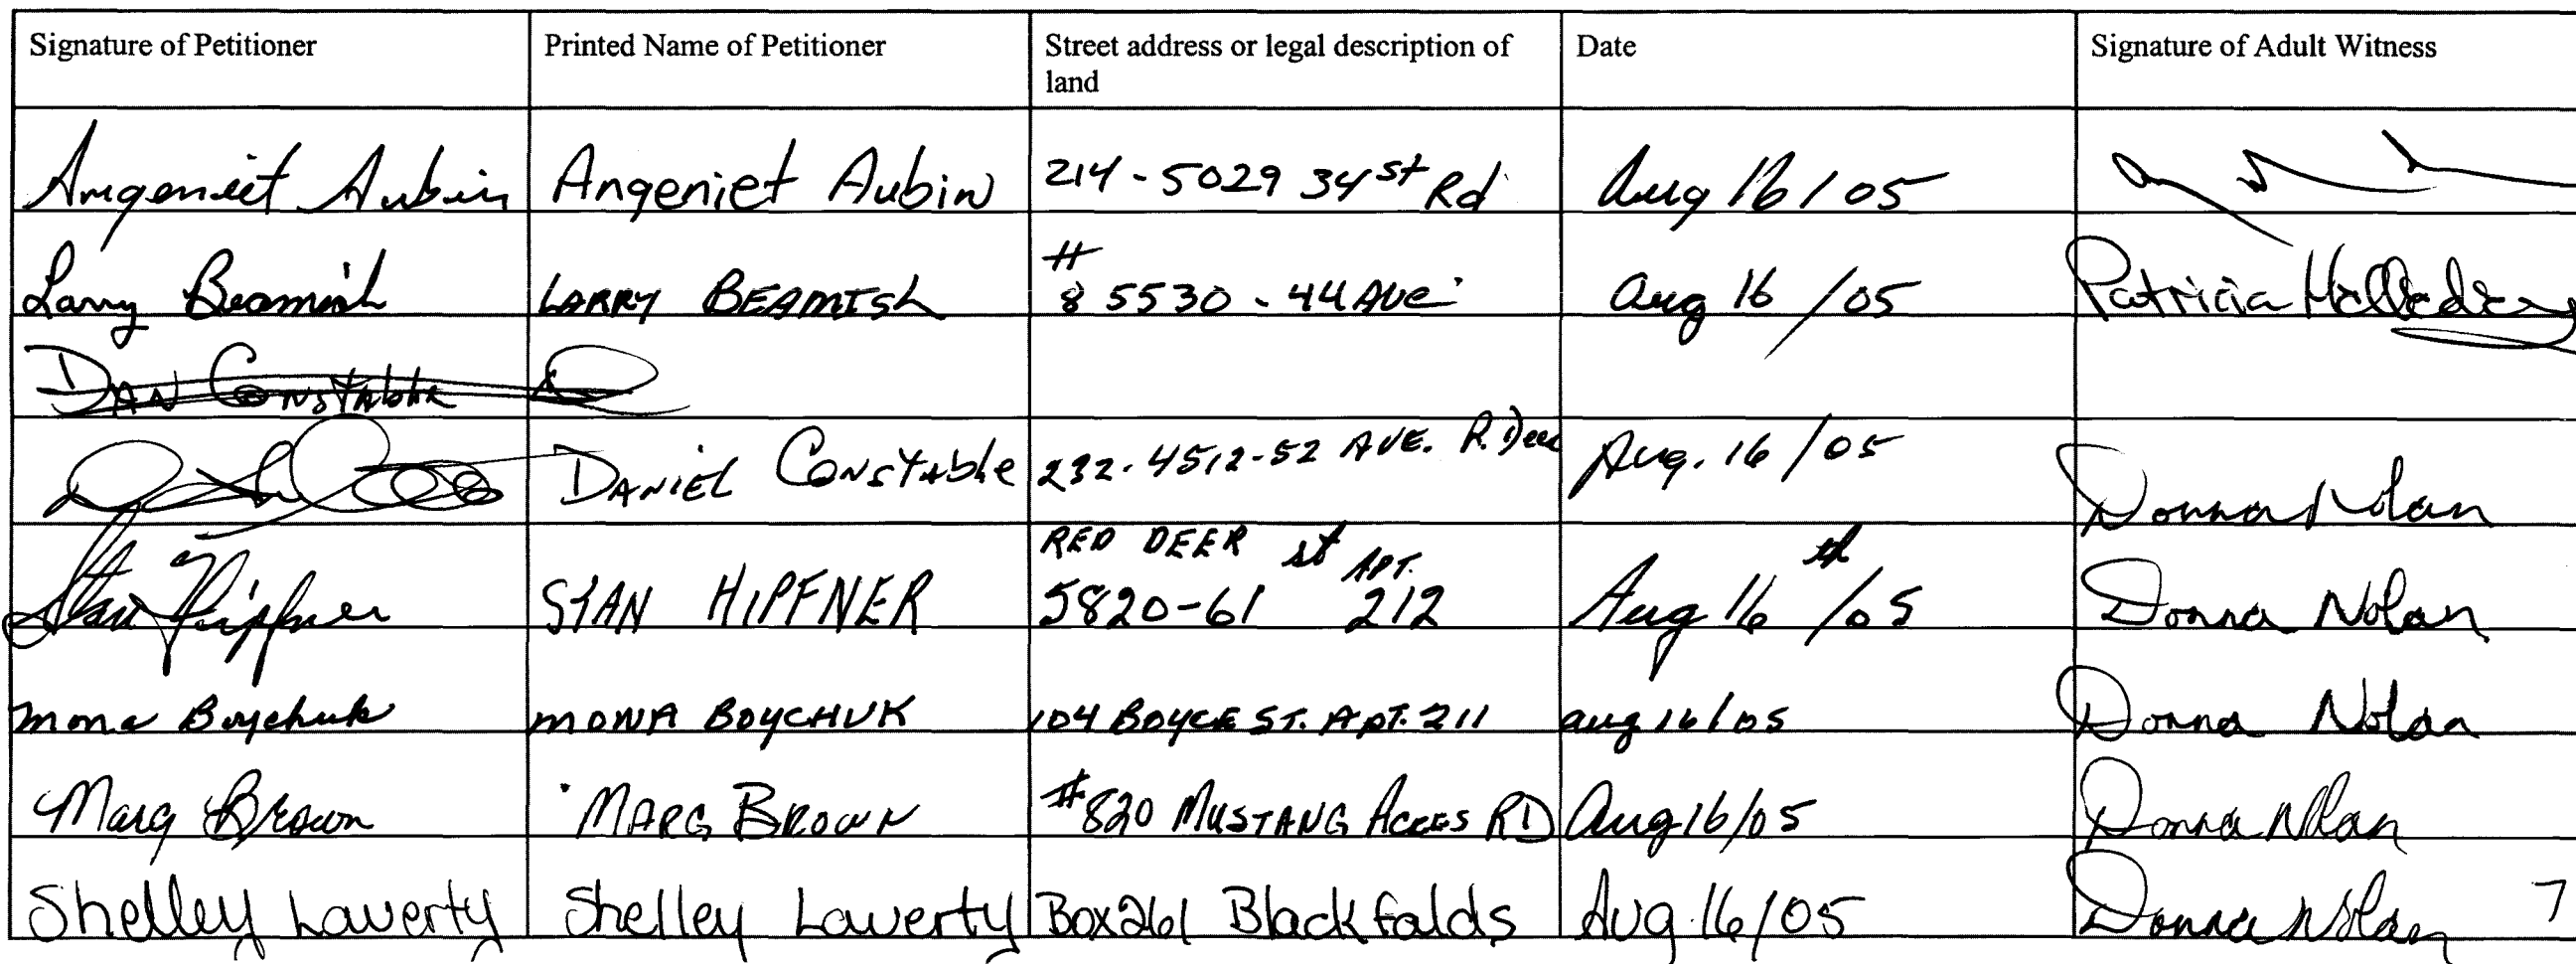 Signature of Petitioner Printed Name of Petitioner Street address or legal description of land Date Signature of Adult Witness
Angeniet Aubin Angeniet Aubin 214 - 5029 34 st Rd Aug 16 / 05
Larry Beamish LARRY BEAMISh # 8 5530 - 44 AVe Aug 16 /05 Patricia Halladay
DAN Constable
DANIEL Constable 232 - 4512 - 52 AVE. R. Deer Aug. 16 /05 Donna Nolan
Stan Hipfner STAN HIPFNER RED DEER 5820-61 st APT. 212 Aug 16 th /05 Donna Nolan
Mona Boychuk MONA BOYCHUK 104 BOYCE ST. APT. 211 Aug 16/05 Donna Nolan
Marg Brown MARG BROWN #820 MUSTANG ACRES RD Aug 16/05 Donna Nolan
Shelley Laverty Shelley Laverty Box 261 Blackfalds Aug 16/05 Donna Nolan 7